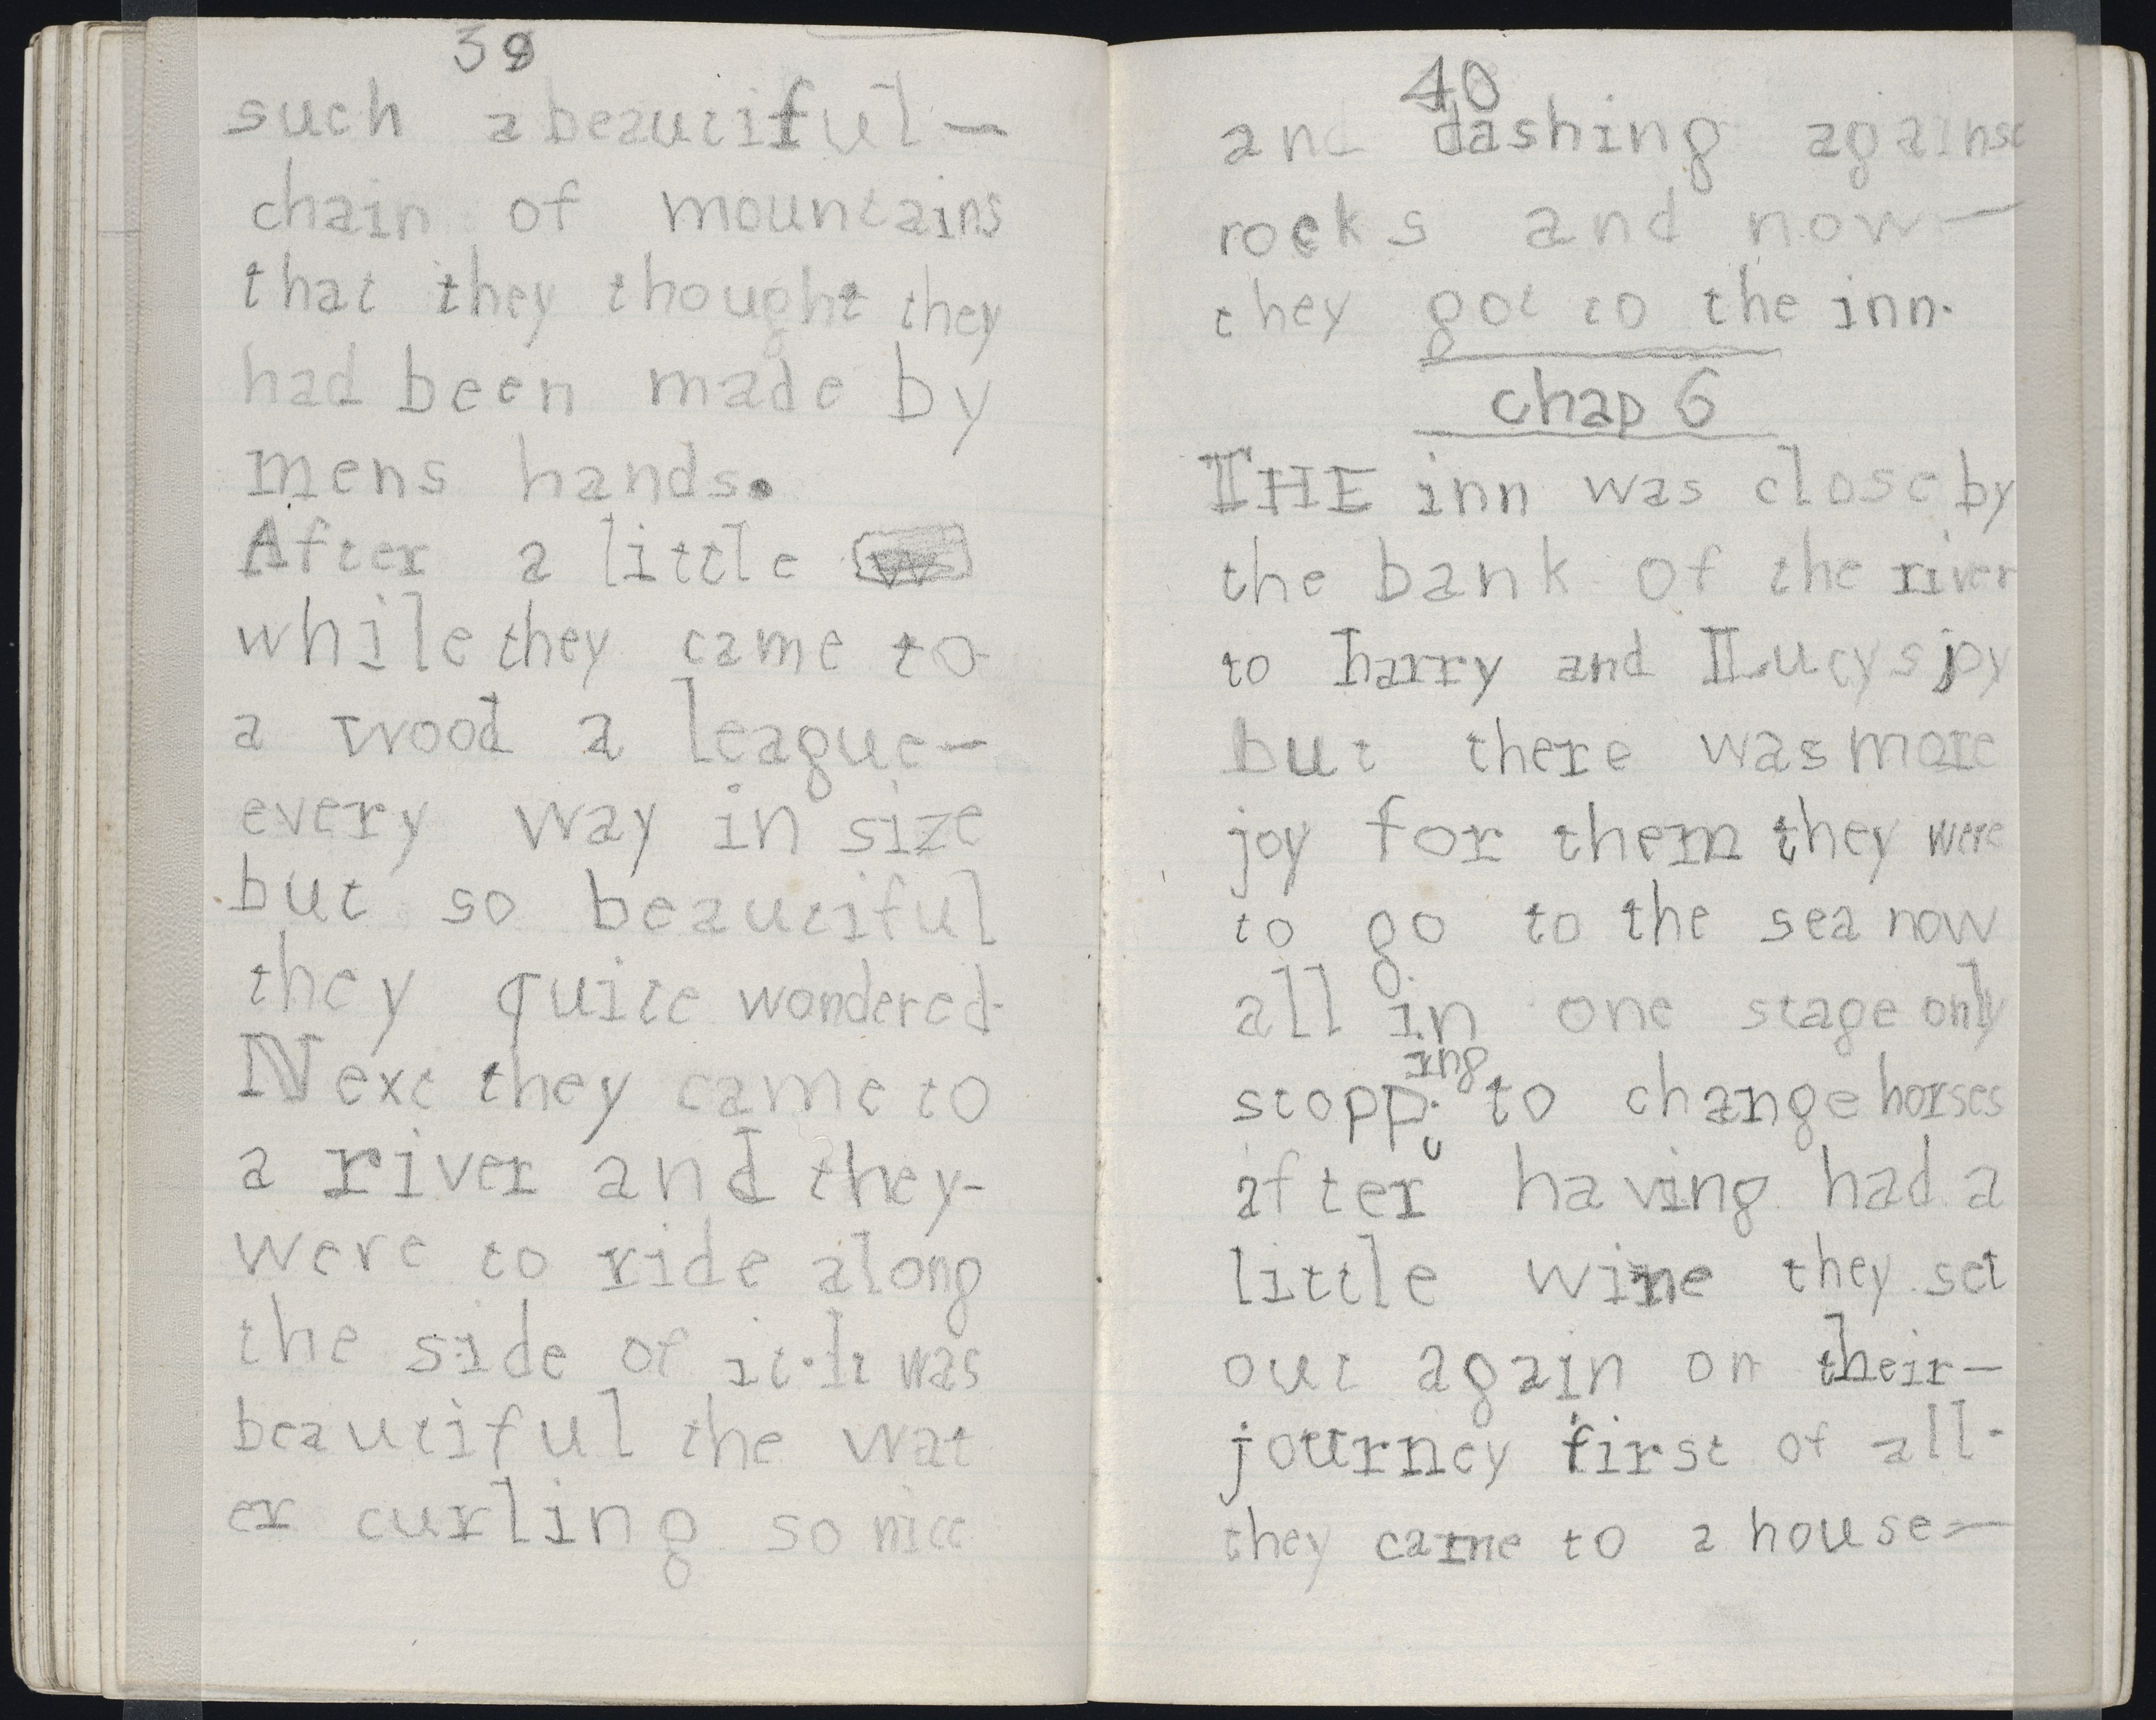 39
such a beautiful—
chain of mountains
that they thought they
had been made by
mens hands.
After a little
while they came to
a wood a league—
every way in size
but so beautiful
they quite wondered.
Next they came to
a river and they-
were to ride along
the side of it. It was
beautiful the wat
er curling so nice
40
and dashing against
rocks and now—
they got to the inn.
chap 6
THE inn was close by
the bank of the river
to harry and Lucys joy
but there was more
joy for them they were
to go to the sea now
all in one stage only
stopping to change horses
after having had a
little wine they set
out again on their—
journey first of all-
they came to a house—